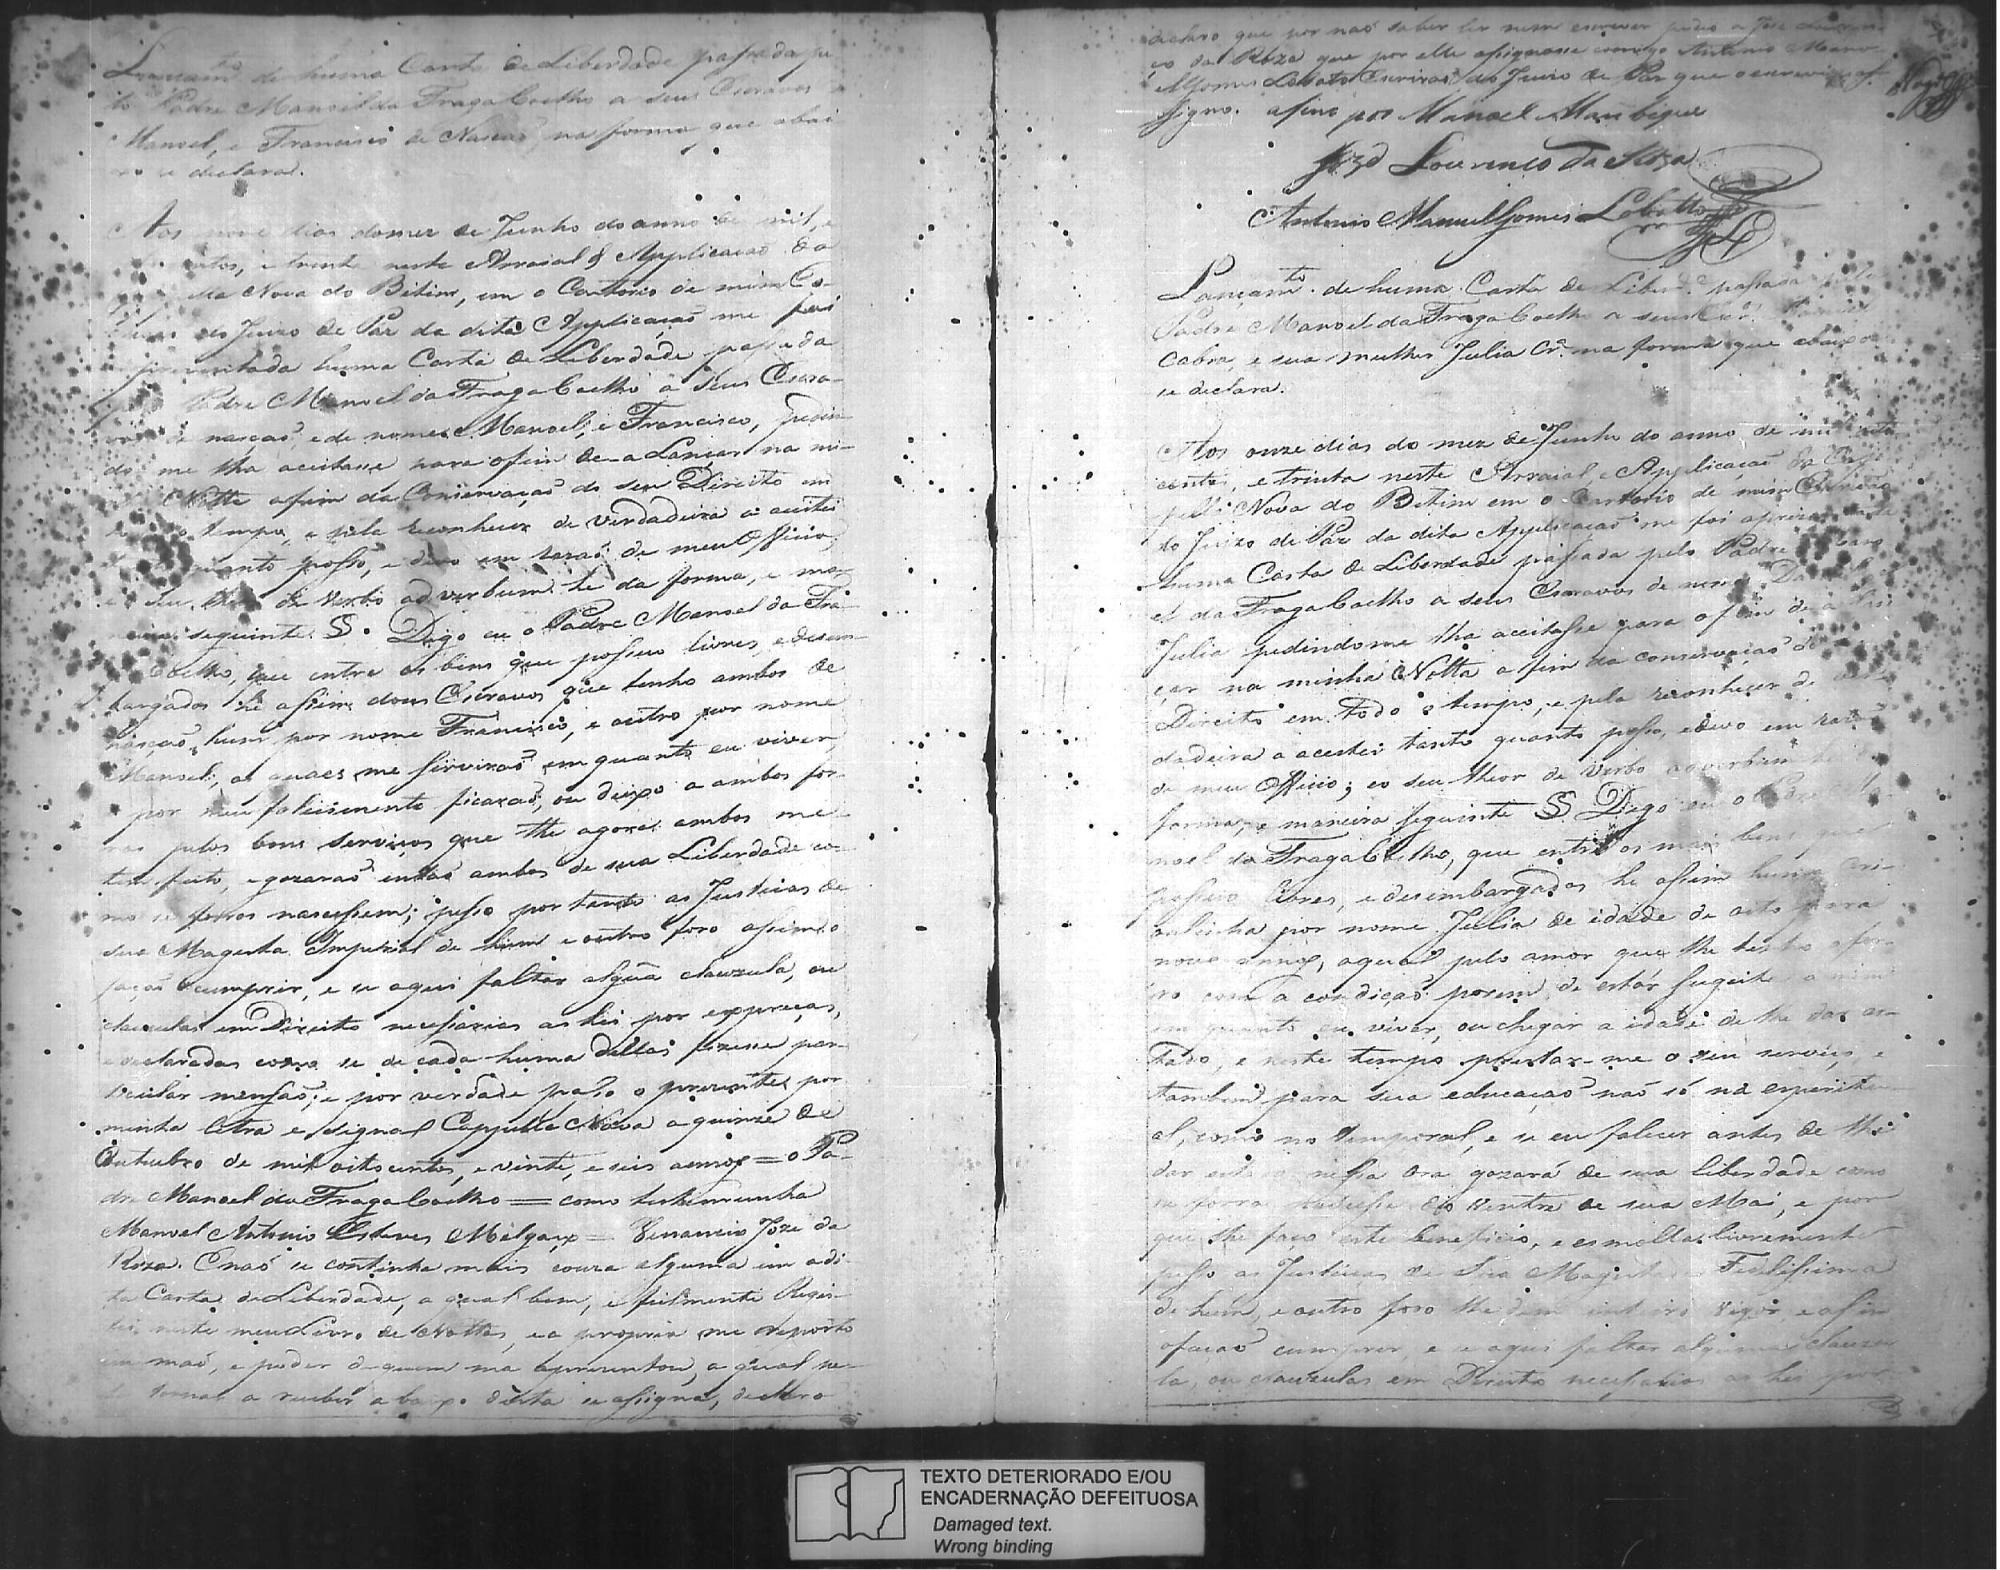 Lançam.to de huma Carta de Liberdade passada pe
lo Padre Manoel da Fraga Coelho a seus Escravos
Manoel, e Francisco de Nascaõ, na forma que abai
xo se declara.
Aos nove dias do mez de Junho do anno de mil, e
centos, e trinta neste Arraial & Applicacaõ da
Nova do Betim, em o Cartorio de mim Es-
do Juizo de Paz da dita Applicaçaõ me foi
aprezentada huma Carta de Liberdade passada
Padre Manoel da Fraga Coelho a seus Escra-
vos de nascaõ, e de nomes Manoel, e Francisco, pedin-
do me lha aceitasse para o fim de a Lançar na mi-
Notta a fim da Conservaçaõ do seu Direito em
tempo, e pela reconhecer de verdadeira a aceitei
quanto posso, e devo em razaõ de meu Officio,
e seu theor de verbo ad verbum he da forma, e ma-
neira seguinte SS. Digo eu o Padre Manoel da Fra-
Coelho, que entre os bens que possuo livres, e desem-
bargados he assim dous Escravos que tenho ambos de
nascaõ, hum por nome Francisco, e outro por nome
Manoel, os quaes me serviraõ em quanto eu viver,
e por meu falecimento ficaraõ, ou deixo a ambos for-
ros pelos bons serviços que athe agora ambos me
tem feito, e gozaraõ entaõ ambos de sua Liberdade co-
mo se forros nascessem; pesso por tanto as Justicas de
Sua Magesta. Imperial de hum e outro foro assim o
façaõ cumprir, e se aqui faltar algũa clauzula, ou
clauzulas em Direito necessarias as hei por expreças,
e declaradas como se de cada huma dellas fizesse par-
ticular mensaõ; e por verdade passo o prezente por
minha letra e signal Cappella Nova a quinze de
Outubro de mil oitocentos, e vinte, e seis annos = o Pa-
dre Manoel da Fraga Coelho = como testemunha
Manoel Antonio Esteves Melgaço = Venancio Joze da
Roza. E naõ se continha mais couza alguma em a di-
ta Carta de Liberdade, a qual bem, e fielmente Regis-
tei neste meu Livro de Nottas, e a propria me reporto
em maõ, e poder de quem ma aprezentou, a qual
tornou a receber abaixo desta se assigna, declaro
declaro que por naõ saber ler nem escrever pedio a Joze Lourenc
co da Roza que por elle assignasse comigo Antonio Manoel
Gomes Lobato Escrivaõ do Juizo de Paz que o escrevi e as
signo. Asino por Manoel Manbique
Jozé Lourenco da Roza
Antonio Manuel Gomes Lobatto
Lançam.to de huma Carta de Liberd.e passada pelo
Padre Manoel da Fraga Coelho a seus
Cabra, e sua mulher Julia Cr.a na forma que abaixo
se declara.
Aos onze dias do mez de Junho do anno de mil oito
centos, e trinta neste Arraial, e Applicaçaõ da Cap
pella Nova do Betim em o Cartorio de mim Escrivaõ
do Juizo de Paz da dita Applicacaõ me foi aprezentada
huma Carta de Liberdade passada pelo Padre Mano
el da Fraga Coelho a seus Escravos de nomes
Julia pedindome lha aceitasse para o fim de a Lan
çar na minha Notta a fim da conservaçaõ do
Direito em todo o tempo, e pela reconhecer de ver
dadeira a aceitei tanto quanto posso, e devo em razaõ
de meu Officio; eo seu theor de verbo ad verbum
forma, e maneira seguinte SS Digo eu o Padre Ma
noel da Fraga Coelho, que entre os mais bens que
possuo livres, e desimbargados he assim huma cri-
oulinha por nome Julia de idade de oito para
nove annos, a qual pelo amor que lhe tenho a for-
ro com a condicaõ porem de estar sugeita a mim
em quanto eu viver, ou chegar a idade de lhe dar es-
tado, e neste tempo prestar-me o seu serviço, e
tambem para sua educaçaõ naõ só na espiritu
al, como no temporal, e se eu falecer antes de lhe
dar estado nessa ora gozará de sua liberdade como
se forra nascesse do ventre de sua Mai, e por
que lhe faço este beneficio, e esmolla livremente
pesso as Justicas de Sua Magesta. Fidelissima
de hum, e outro foro lhe dem inteiro vigor, e assim
o façaõ cumprir, e se aqui faltar alguma clauzu
la, ou clauzulas em Direito necessarias as hei por
TEXTO DETERIORADO E/OU
ENCADERNAÇÃO DEFEITUOSA
Damaged text.
Wrong binding